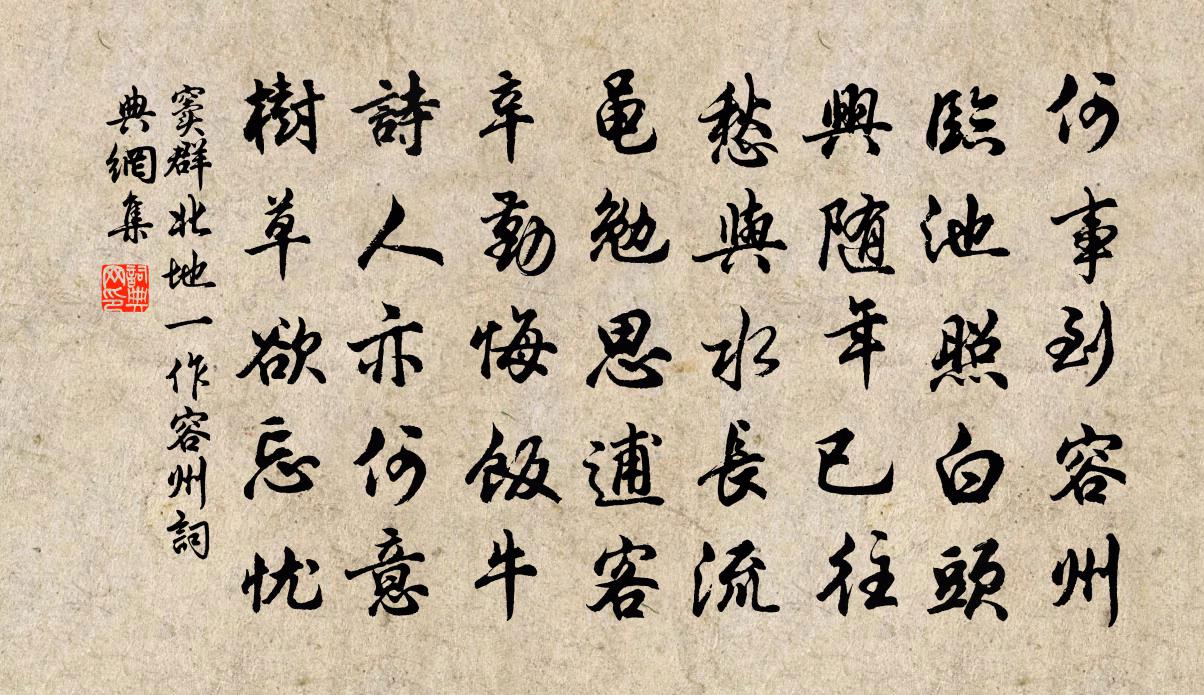 何事到容州
臨池照白頭
興随年已往
愁與水長流
黽勉思逋客
辛勤悔飯牛
詩人亦何意
樹草欲忘忧
窦群北地一作容州詞
典網集
詞典
网印